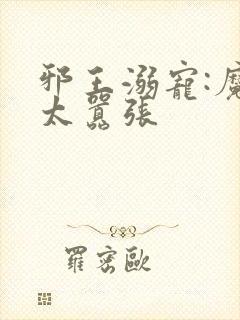 邪王溺寵:魔
太囂張
羅密歐